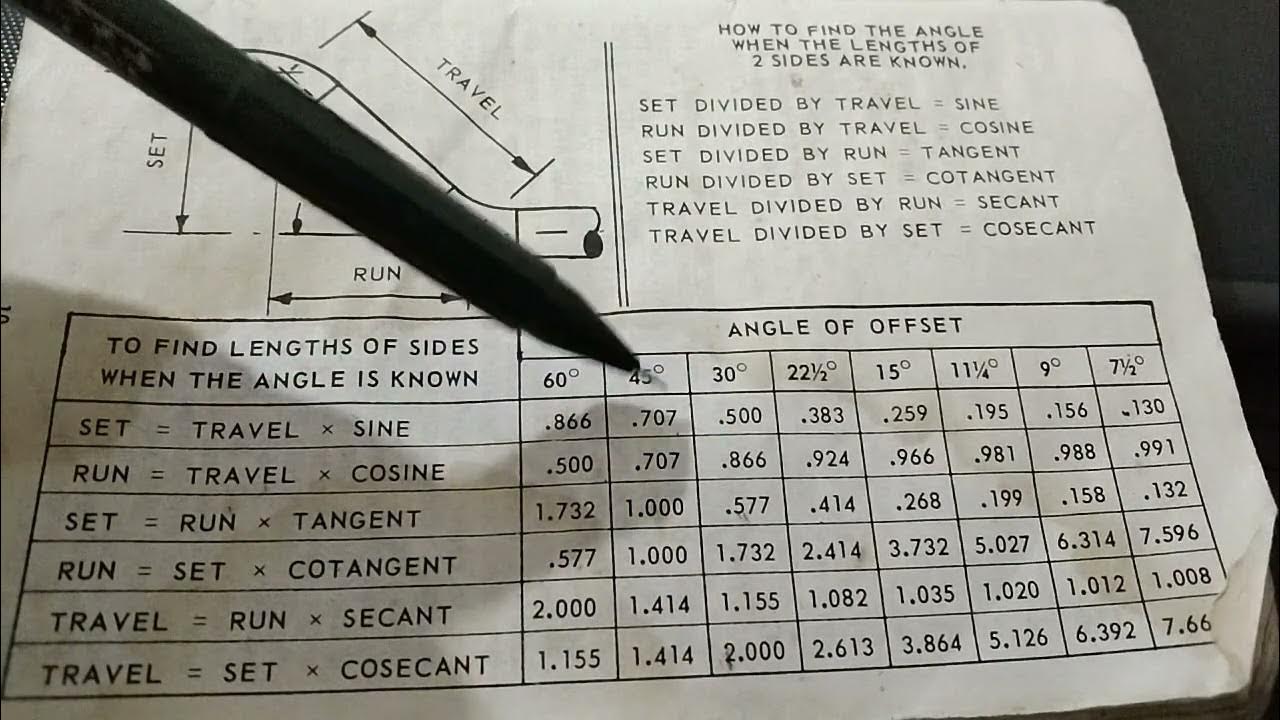 HOW TO FIND THE ANGLE
WHEN THE LENGTHS OF
2 SIDES ARE KNOWN.
SET DIVIDED BY TRAVEL = SINE
RUN DIVIDED BY TRAVEL = COSINE
SET DIVIDED BY RUN = TANGENT
RUN DIVIDED BY SET = COTANGENT
TRAVEL DIVIDED BY RUN = SECANT
TRAVEL DIVIDED BY SET = COSECANT
TRAVEL
SET
RUN
TO FIND LENGTHS OF SIDES
WHEN THE ANGLE IS KNOWN
ANGLE OF OFFSET
60° 45° 30° 22½° 15° 11¼° 9° 7½°
SET = TRAVEL × SINE .866 .707 .500 .383 .259 .195 .156 .130
RUN = TRAVEL × COSINE .500 .707 .866 .924 .966 .981 .988 .991
SET = RUN × TANGENT 1.732 1.000 .577 .414 .268 .199 .158 .132
RUN = SET × COTANGENT .577 1.000 1.732 2.414 3.732 5.027 6.314 7.596
TRAVEL = RUN × SECANT 2.000 1.414 1.155 1.082 1.035 1.020 1.012 1.008
TRAVEL = SET × COSECANT 1.155 1.414 2.000 2.613 3.864 5.126 6.392 7.66